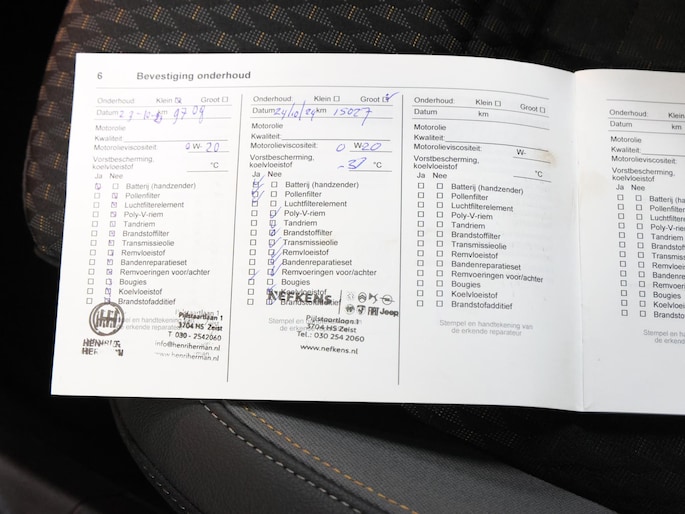 6 Bevestiging onderhoud
Onderhoud: Klein Groot
Datum 23-10- km 9709
Motorolie
Kwaliteit:
Motorolieviscositeit: 0 W-20
Vorstbescherming,
koelvloeistof °C
Ja Nee
Batterij (handzender)
Pollenfilter
Luchtfilterelement
Poly-V-riem
Tandriem
Brandstoffilter
Transmissieolie
Remvloeistof
Bandenreparatieset
Remvoeringen voor/achter
Bougies
Koelvloeistof
Brandstofadditief
Pijlstaartlaan 1
3704 HS Zeist
T 030 - 2542060
info@henriherman.nl
www.henriherman.nl
Onderhoud: Klein Groot
Datum 24/10/24 km 15027
Motorolie
Kwaliteit:
Motorolieviscositeit: 0 W-20
Vorstbescherming,
koelvloeistof -37 °C
Ja Nee
Batterij (handzender)
Pollenfilter
Luchtfilterelement
Poly-V-riem
Tandriem
Brandstoffilter
Transmissieolie
Remvloeistof
Bandenreparatieset
Remvoeringen voor/achter
Bougies
Koelvloeistof
Brandstofadditief
NEFKENS
Jeep
Pijlstaartlaan 1
3704 HS Zeist
Tel.: 030 254 2060
www.nefkens.nl
Onderhoud: Klein Groot
Datum km
Motorolie
Kwaliteit:
Motorolieviscositeit: W-
Vorstbescherming,
koelvloeistof °C
Ja Nee
Batterij (handzender)
Pollenfilter
Luchtfilterelement
Poly-V-riem
Tandriem
Brandstoffilter
Transmissieolie
Remvloeistof
Bandenreparatieset
Remvoeringen voor/achter
Bougies
Koelvloeistof
Brandstofadditief
Stempel en handtekening van
de erkende reparateur
Onderhoud: Klein
Datum km
Motorolie
Kwaliteit:
Motorolieviscositeit:
Vorstbescherming,
koelvloeistof
Ja Nee
Batterij (hand
Pollenfilter
Luchtfilterele
Poly-V-riem
Tandriem
Brandstoff
Transmissi
Remvloeis
Bandenre
Remvoer
Bougies
Koelvloe
Brandst
Stempel en
de erken